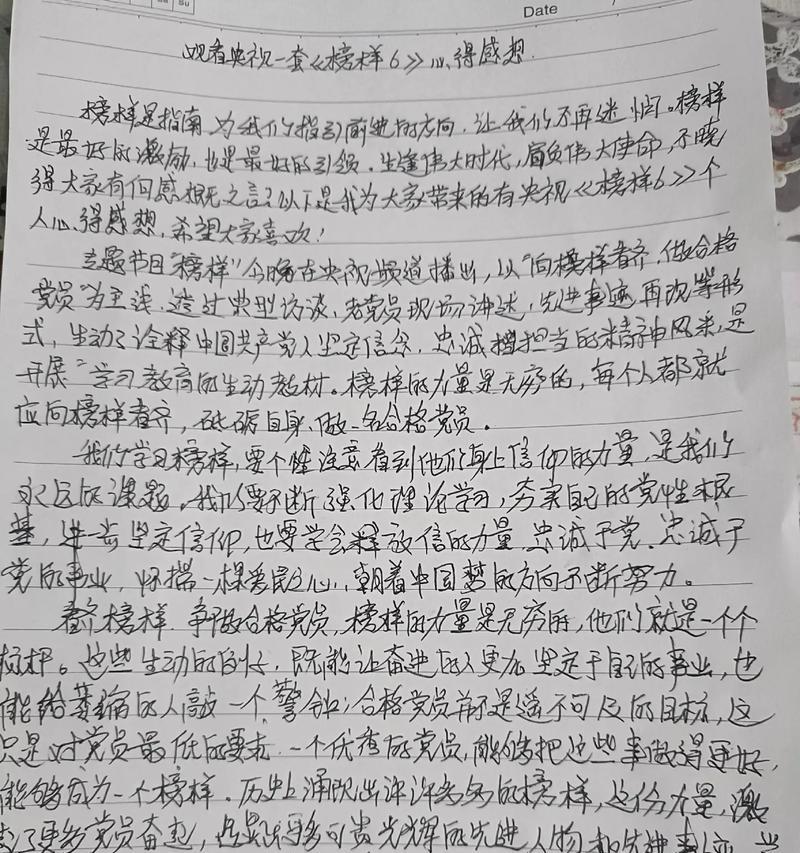 Su
Date
观看央视一套《榜样6》心得感想.
榜样是指南,为我们指引前进的方向,让我们不再迷惘。榜样
是最好的激励,也是最好的引领。生逢伟大时代,肩负伟大使命,不晓
得大家有何感慨之言?以下是我为大家带来的有央视《榜样6》个
人心得感想,希望大家喜欢!
专题节目"榜样"今晚在央视频道播出,以"向榜样看齐,做合格
党员"为主线,透过典型访谈,老党员现场讲述,先进事迹再现等形
式,生动了诠释中国共产党人坚定信念,忠诚担当的精神风采,是
开展"学习教育的生动教材。榜样的力量是无穷的,每个人都就
应向榜样看齐,砥砺自身,做一名合格党员。
我们学习榜样,要个性注意看到他们身上信仰的力量,是我们
永远的课题。我们要不断强化理论学习,夯实自己的党性根
基,进一步坚定信仰,也要学会释放信的力量,忠诚于党、忠诚于
党的事业,怀揣一棵爱民之心,朝着中国梦的方向不断努力。
看齐榜样,争做合格党员,榜样的力量是无穷的,他们就是一个个
标杆。这些生动的例子,既能让奋进的人更加坚定于自己的事业,也
能给萎缩的人敲一个警钟;合格党员并不是遥不可及的目标,这
只是对党员最低的要求,一个优秀的党员,能够把这些事做得更好,
能够成为一个榜样。历史上涌现出许许多多的榜样,这份力量,激
了更多党员奋起,可贵光辉的先进人物和先进事迹,